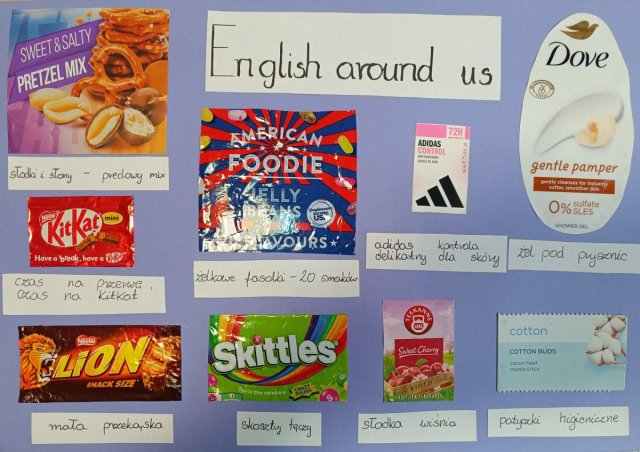 SWEET & SALTY
PRETZEL MIX
English around us
Dove
gentle pamper
gently cleanses for instantly
softer, smoother skin
0% sulfate
SLES
SHOWER GEL
AMERICAN
FOODIE
JELLY
BEANS
FLAVOURS
72H
ADIDAS
CONTROL
adidas
słodki i słony - preclowy mix
Nestlé
KitKat mini
Have a break, have a KitKat
żelkowe fasolki - 20 smaków
adidas kontrola
delikatny dla skóry
żel pod prysznic
czas na przerwę,
czas na kitkat
Nestlé
LION
SNACK SIZE
Skittles
taste the rainbow
TEEKANNE
Sweet Cherry
WORLD OF FRUITS
cotton
COTTON BUDS
cotton head
paper stick
mała przekąska
skosztuj tęczy
słodka wiśnia
patyczki higieniczne